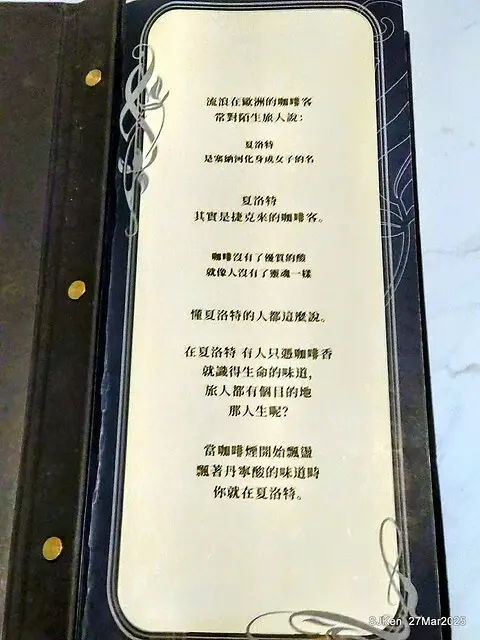 流浪在歐洲的咖啡客
常對陌生旅人說：
夏洛特
是塞納河化身成女子的名
夏洛特
其實是捷克來的咖啡客。
咖啡沒有了優質的酸
就像人沒有了靈魂一樣
懂夏洛特的人都這麼說。
在夏洛特 有人只憑咖啡香
就識得生命的味道，
旅人都有個目的地
那人生呢？
當咖啡煙開始飄盪
飄著丹寧酸的味道時
你就在夏洛特。
SJKen 27Mar2025